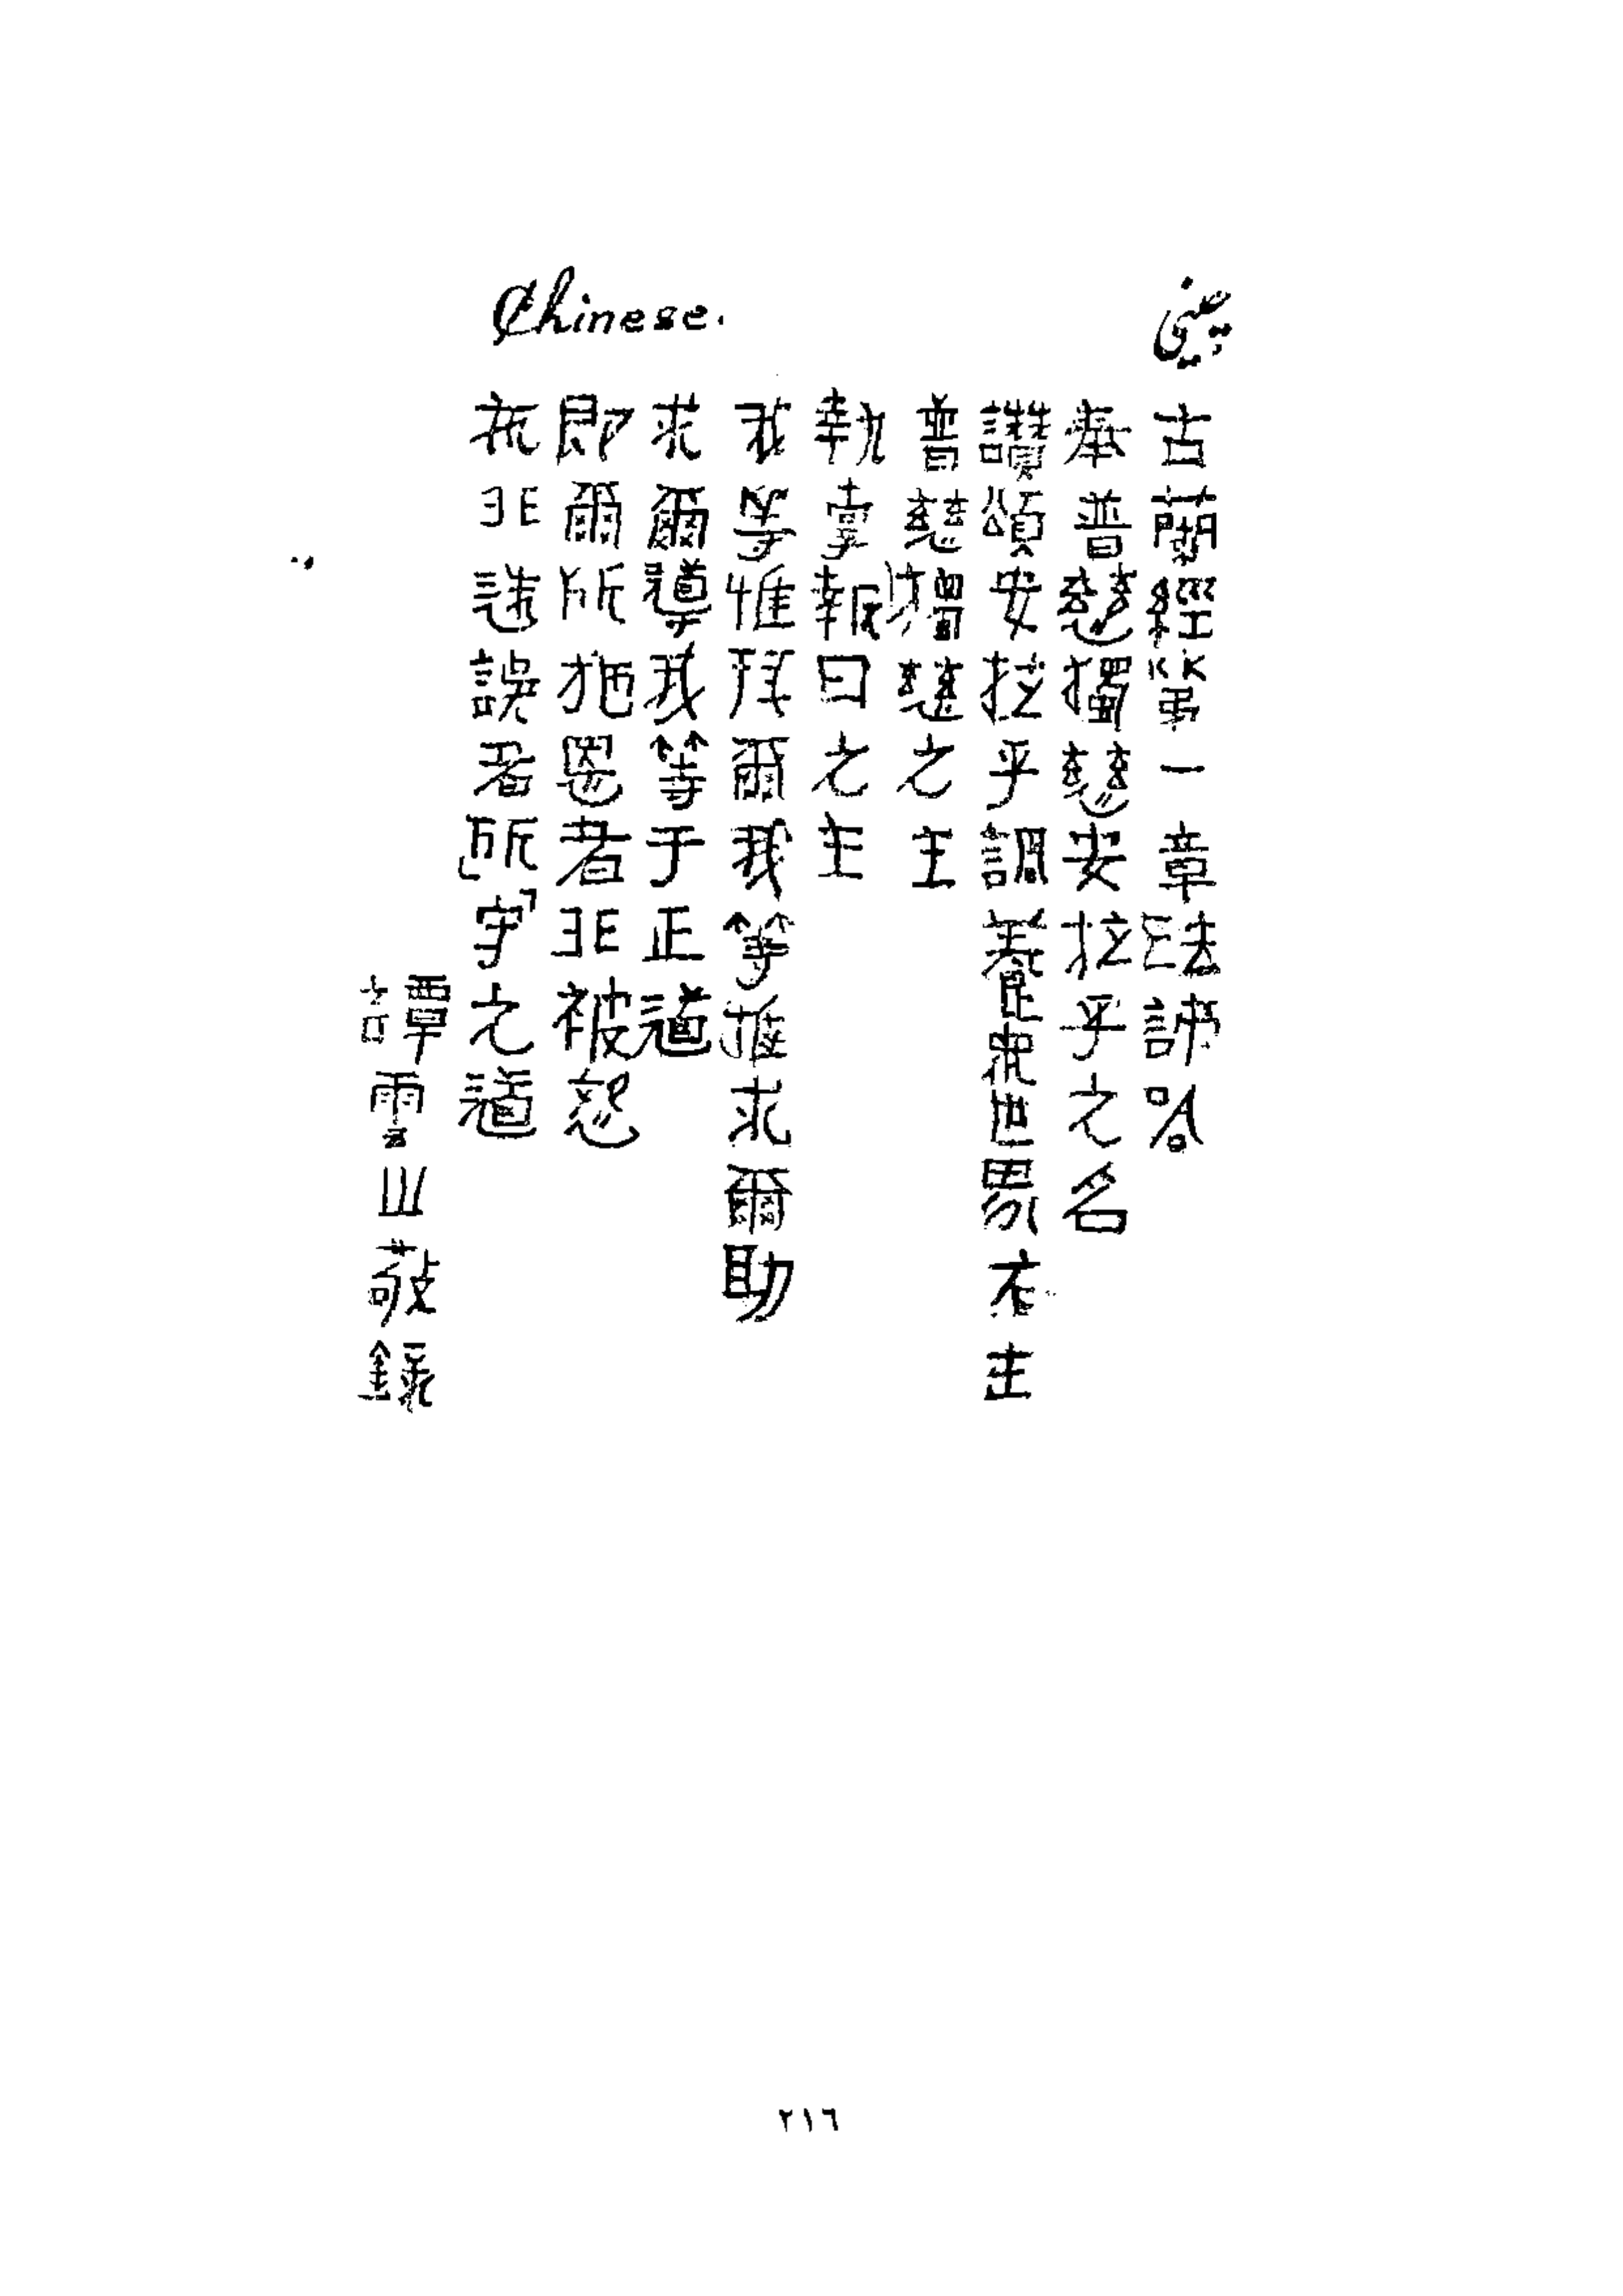 Chinese.
صينى
古蘭經第一章法諦哈
奉普慈獨慈安拉乎之名
讚頌安拉乎調養眾世界之主
普慈獨慈之主
執掌報日之主
我等惟拜爾我等惟求爾助
求爾導我等于正道
即爾所施恩者非被怒
亦非迷誤者所守之道
譚雲山敬錄
٢١٦